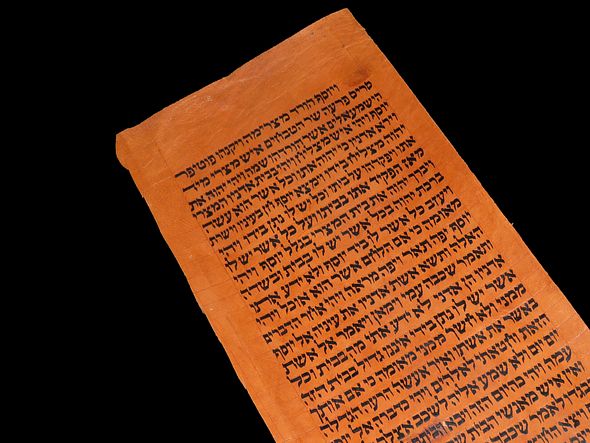 ויוסף הורד מצרימה ויקנהו פוטיפר
סריס פרעה שר הטבחים איש מצרי מיד
הישמעאלים אשר הורדהו שמה ויהי יהוה את
יוסף ויהי איש מצליח ויהי בבית אדניו המצרי
וירא אדניו כי יהוה אתו וכל אשר הוא עשה
יהוה מצליח בידו וימצא יוסף חן בעיניו וישרת
אתו ויפקדהו על ביתו וכל יש לו נתן בידו ויהי
מאז הפקיד אתו בביתו ועל כל אשר יש לו
ויברך יהוה את בית המצרי בגלל יוסף ויהי
ברכת יהוה בכל אשר יש לו בבית ובשדה
ויעזב כל אשר לו ביד יוסף ולא ידע אתו
מאומה כי אם הלחם אשר הוא אוכל ויהי
יוסף יפה תאר ויפה מראה ויהי אחר הדברים
האלה ותשא אשת אדניו את עיניה אל יוסף
ותאמר שכבה עמי וימאן ויאמר אל אשת
אדניו הן אדני לא ידע אתי מה בבית וכל
אשר יש לו נתן בידי איננו גדול בבית הזה
ממני ולא חשך ממני מאומה כי אם אותך
באשר את אשתו ואיך אעשה הרעה הגדלה
הזאת וחטאתי לאלהים ויהי כדברה אל יוסף
יום יום ולא שמע אליה לשכב אצלה
עמה ויהי כהיום הזה ויבא
ואין איש מאנשי הבית
לאמר שכבה